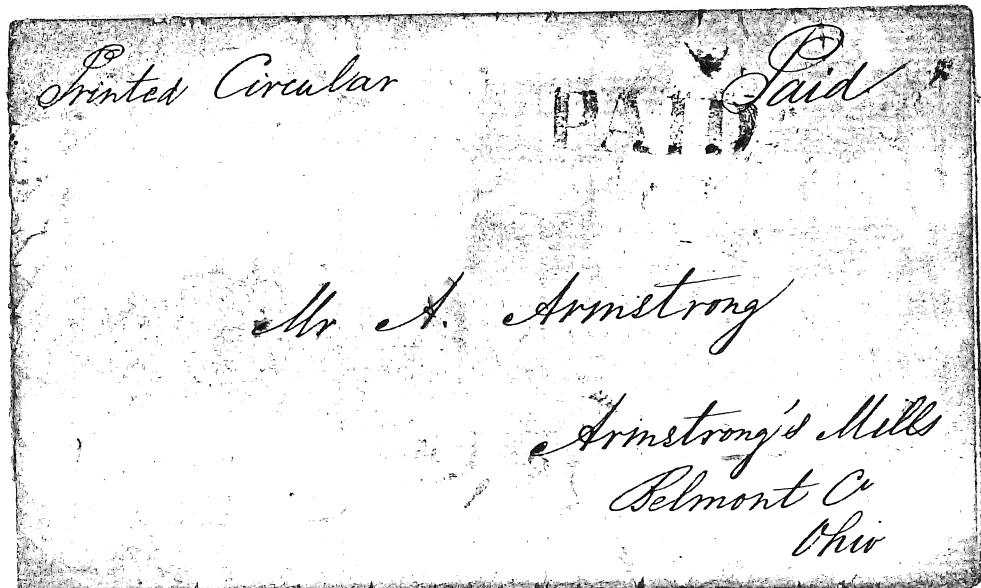 Printed Circular
Paid
PAID
Mr A. Armstrong
Armstrong's Mills
Belmont Co
Ohio